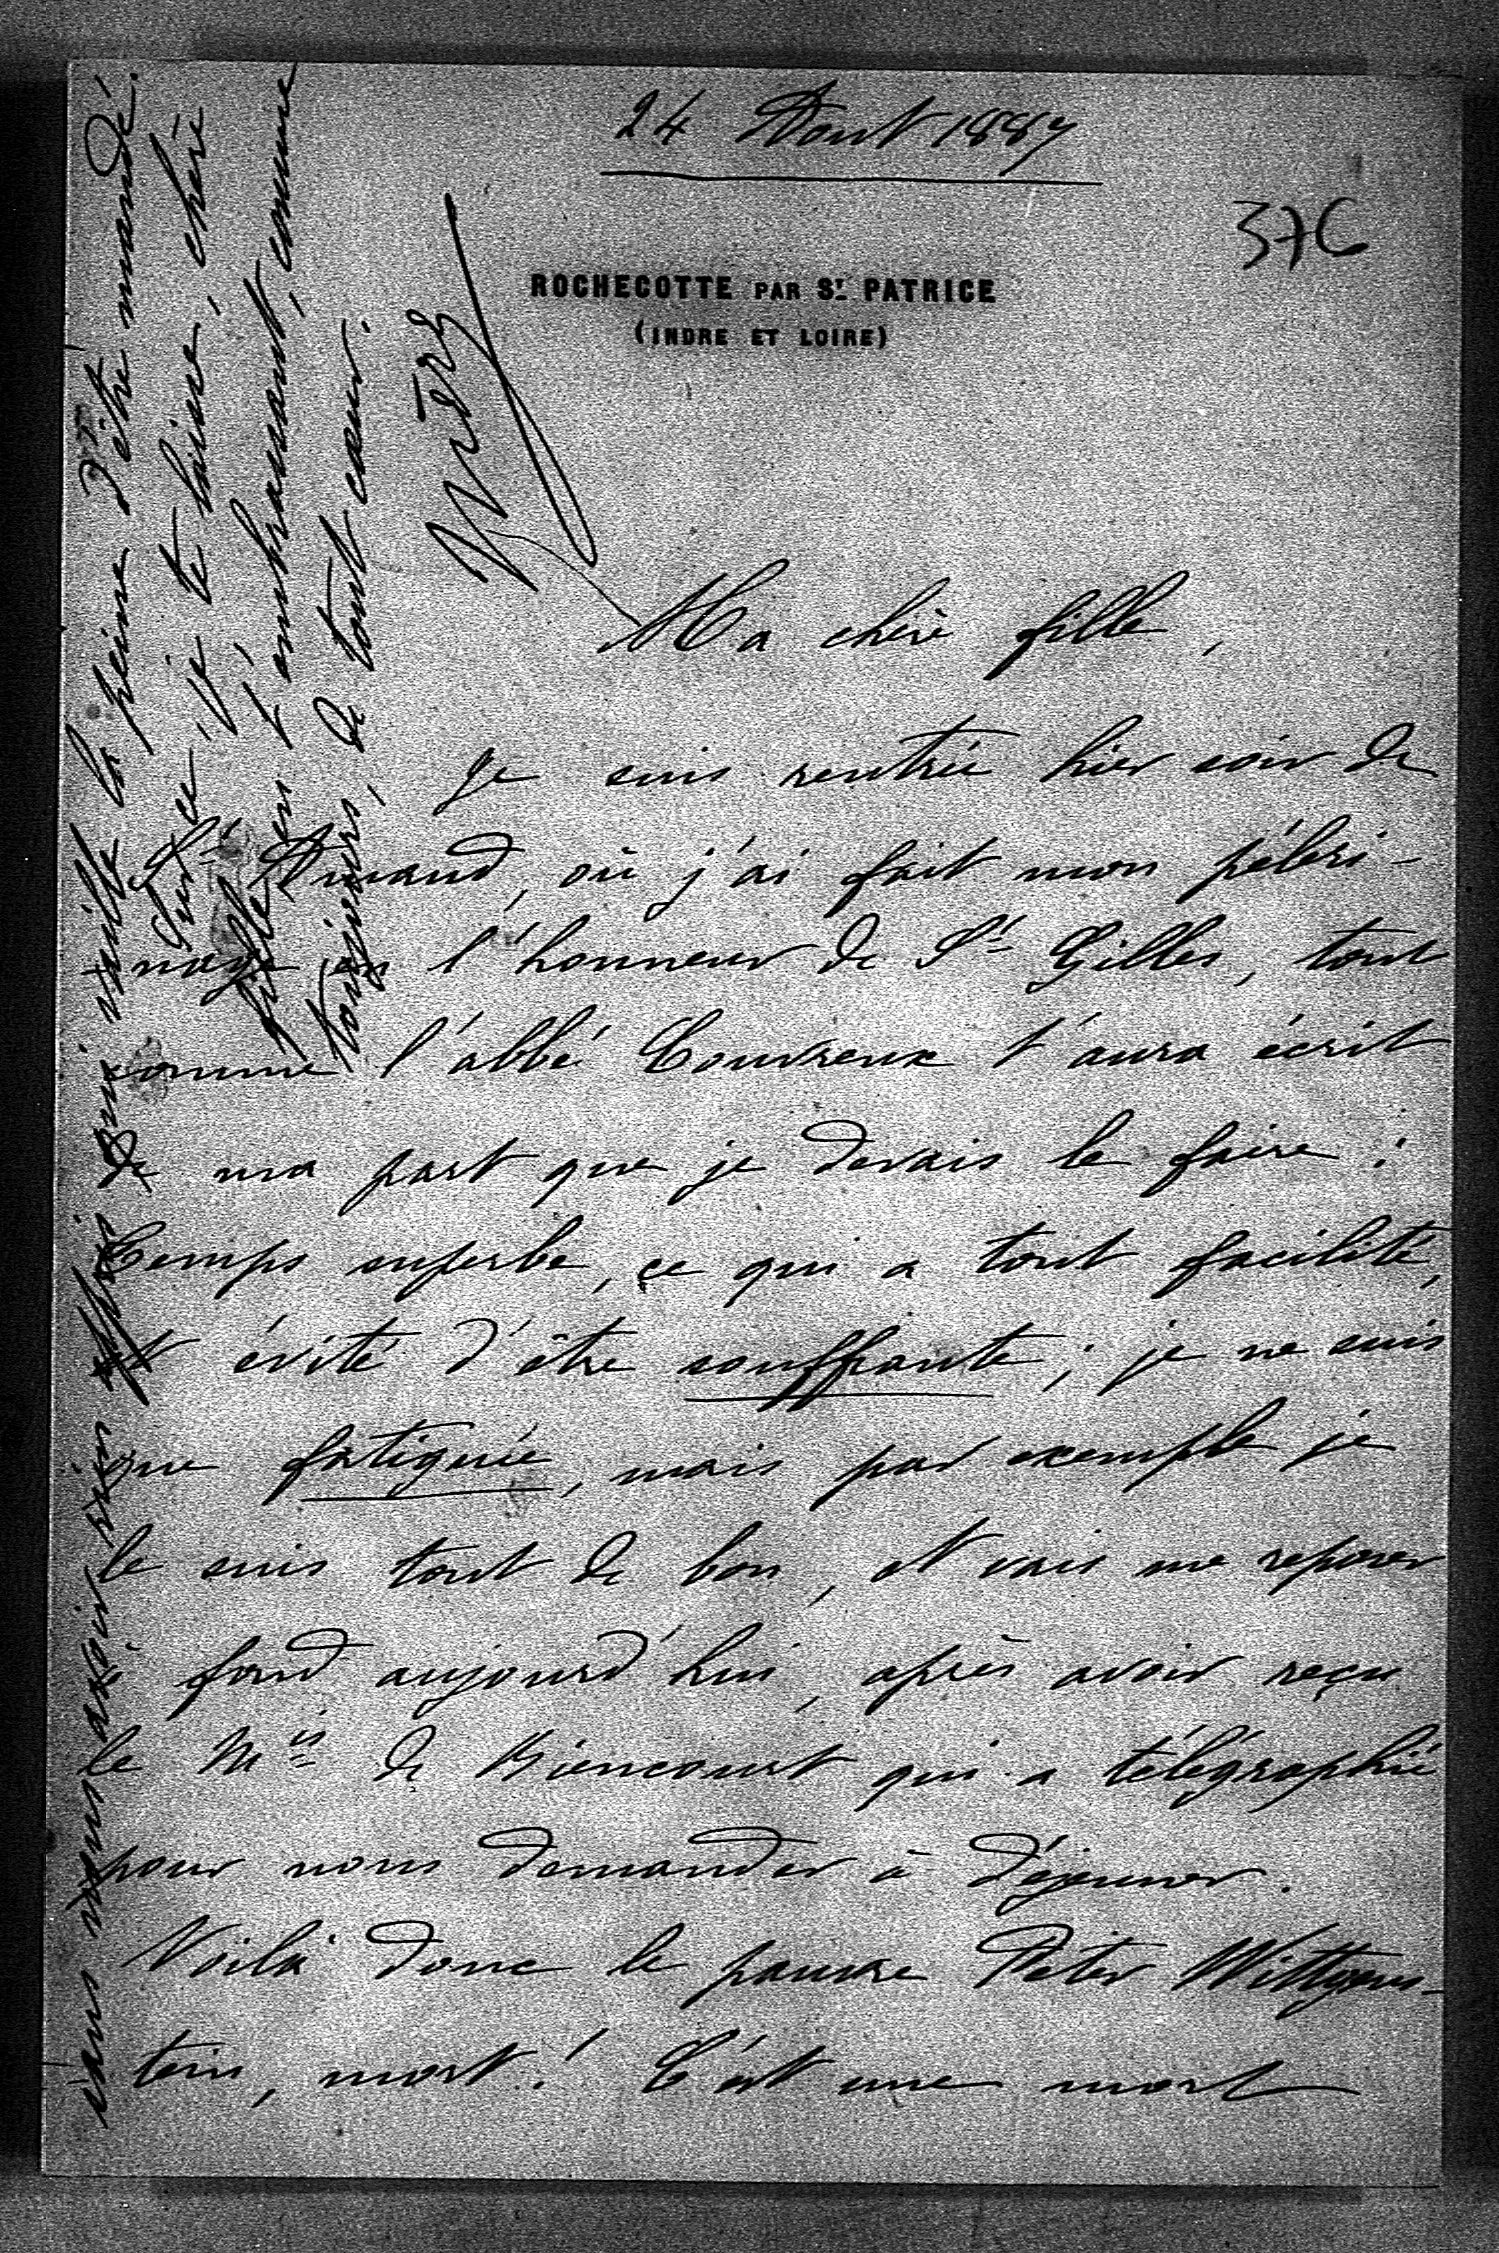 24 Aout 1887
376
ROCHECOTTE PAR ST PATRICE
(INDRE ET LOIRE)
Ma chère fille,
Je suis rentrée hier soir de
St Amand, où j'ai fait mon péleri-
nage en l'honneur de St Gilles, tout
comme l'abbé Couvreux t'aura écrit
de ma part que je devais le faire :
Temps superbe, ce qui a tout facilité,
et évité d'être souffrante ; je ne suis
que fatiguée, mais par exemple je
le suis tout de bon, et vais me reposer
à fond aujourd'hui, après avoir reçu
le Mis de Biencourt qui a télégraphié
pour nous demander à déjeuner.
Voilà donc le pauvre Peter Wittgens-
tein, mort ! C'est une mort
sans nous avoir rien appris qui vaille la peine d'être mandé.
Sur ce, je te laisse, chère
fille, en t'embrassant, comme
toujours, de tout cœur.